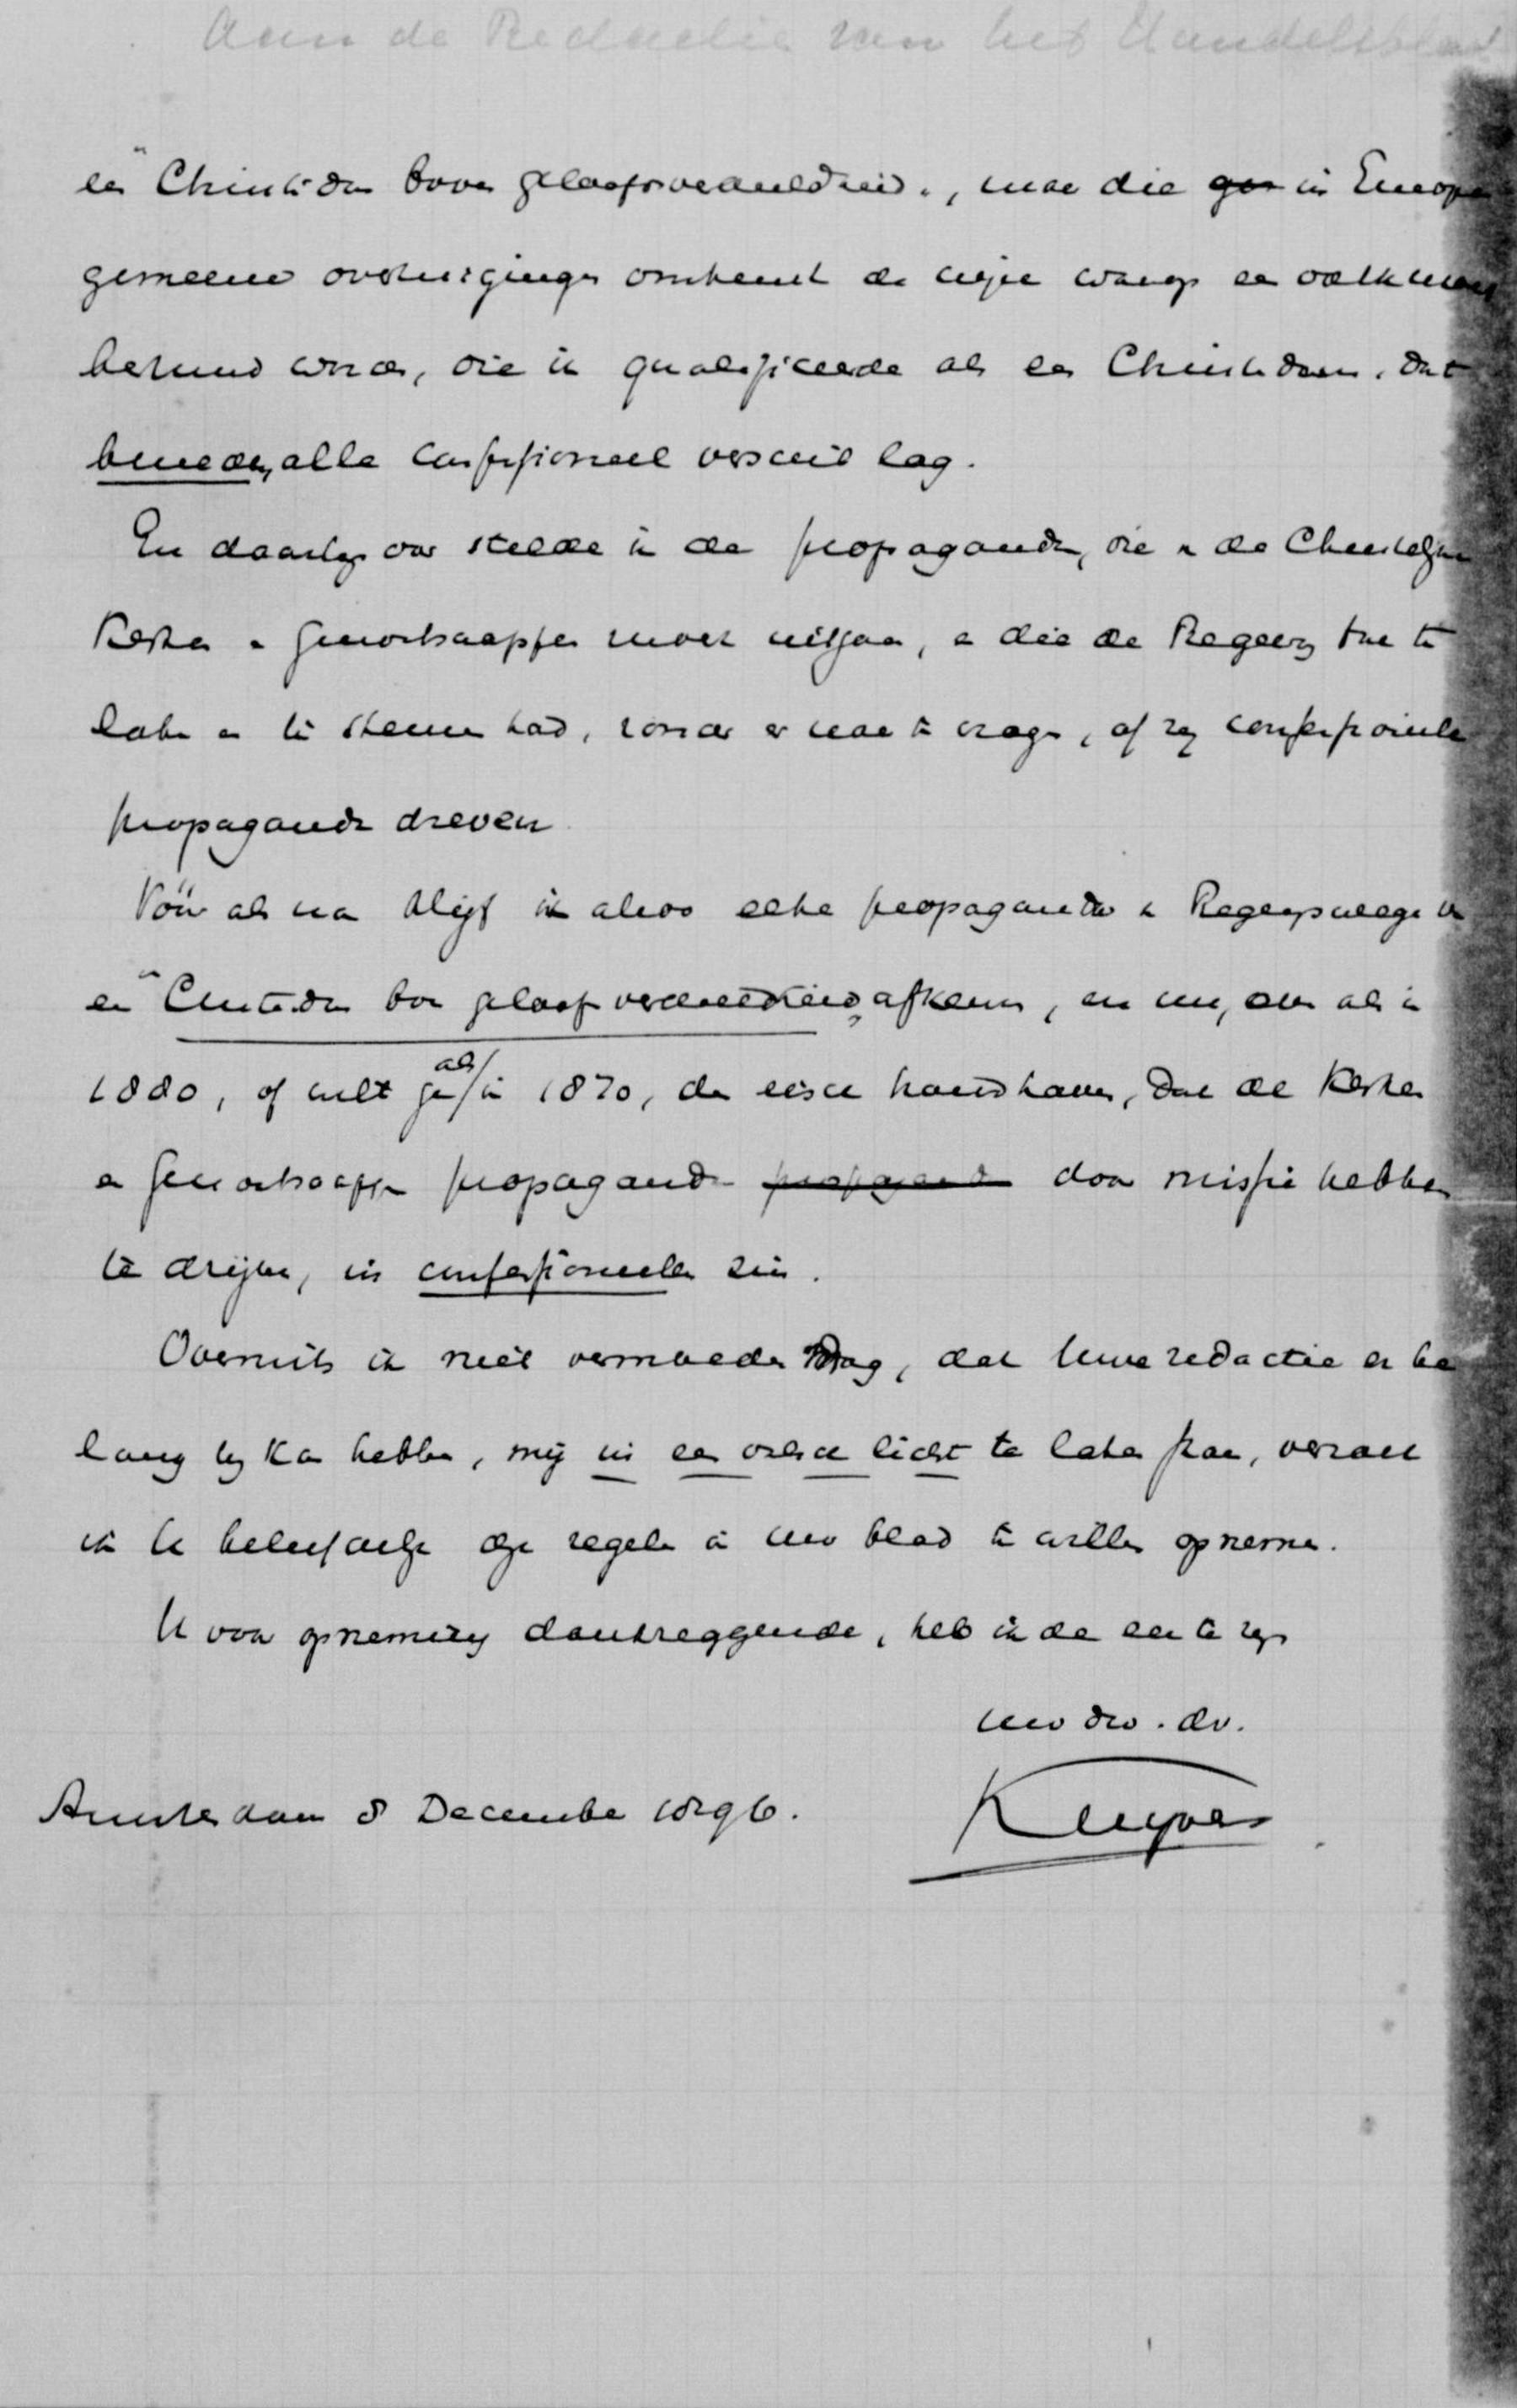 Aan de Redactie van het Handelsblad
een "Christendom boven geloofsverdeeldheid", maar die in Europa
gemeene overtuigingen omtrent de wijze waarop een volk
bestuurd worden, die ik qualificeerde als een Christendom, dat
beneden alle confessioneel verschil lag.
En daartegenover stelde ik de propaganda, die van de Christelijke
Kerken en genootschappen moet uitgaan, en die de Regeering toe te
laten en te steunen had, zonder er naar te vragen, of zij confessioneele
propaganda dreven
Vóór als na blijf ik alzoo elke propaganda van Regeeringswege
een "Christendom boven geloofsverdeeldheid" afkeuren, en nu, even als in
1880, of wilt ge als in 1870, den eisch handhaven, dat de Kerken
en genootschappen propaganda propaganda door missie hebben
te drijven, in confessioneelen zin.
Overmits ik niet vermoeden mag, dat Uwe redactie er be
lang bij kan hebben, mij in een valsch licht te laten staan, verzoek
ik U beleefdelijk deze regelen in uw blad te willen opnemen.
U voor opneming dankzeggende, heb ik de eer te zijn
uw dw. dr.
Amsterdam 8 December 1896.
Kuyper